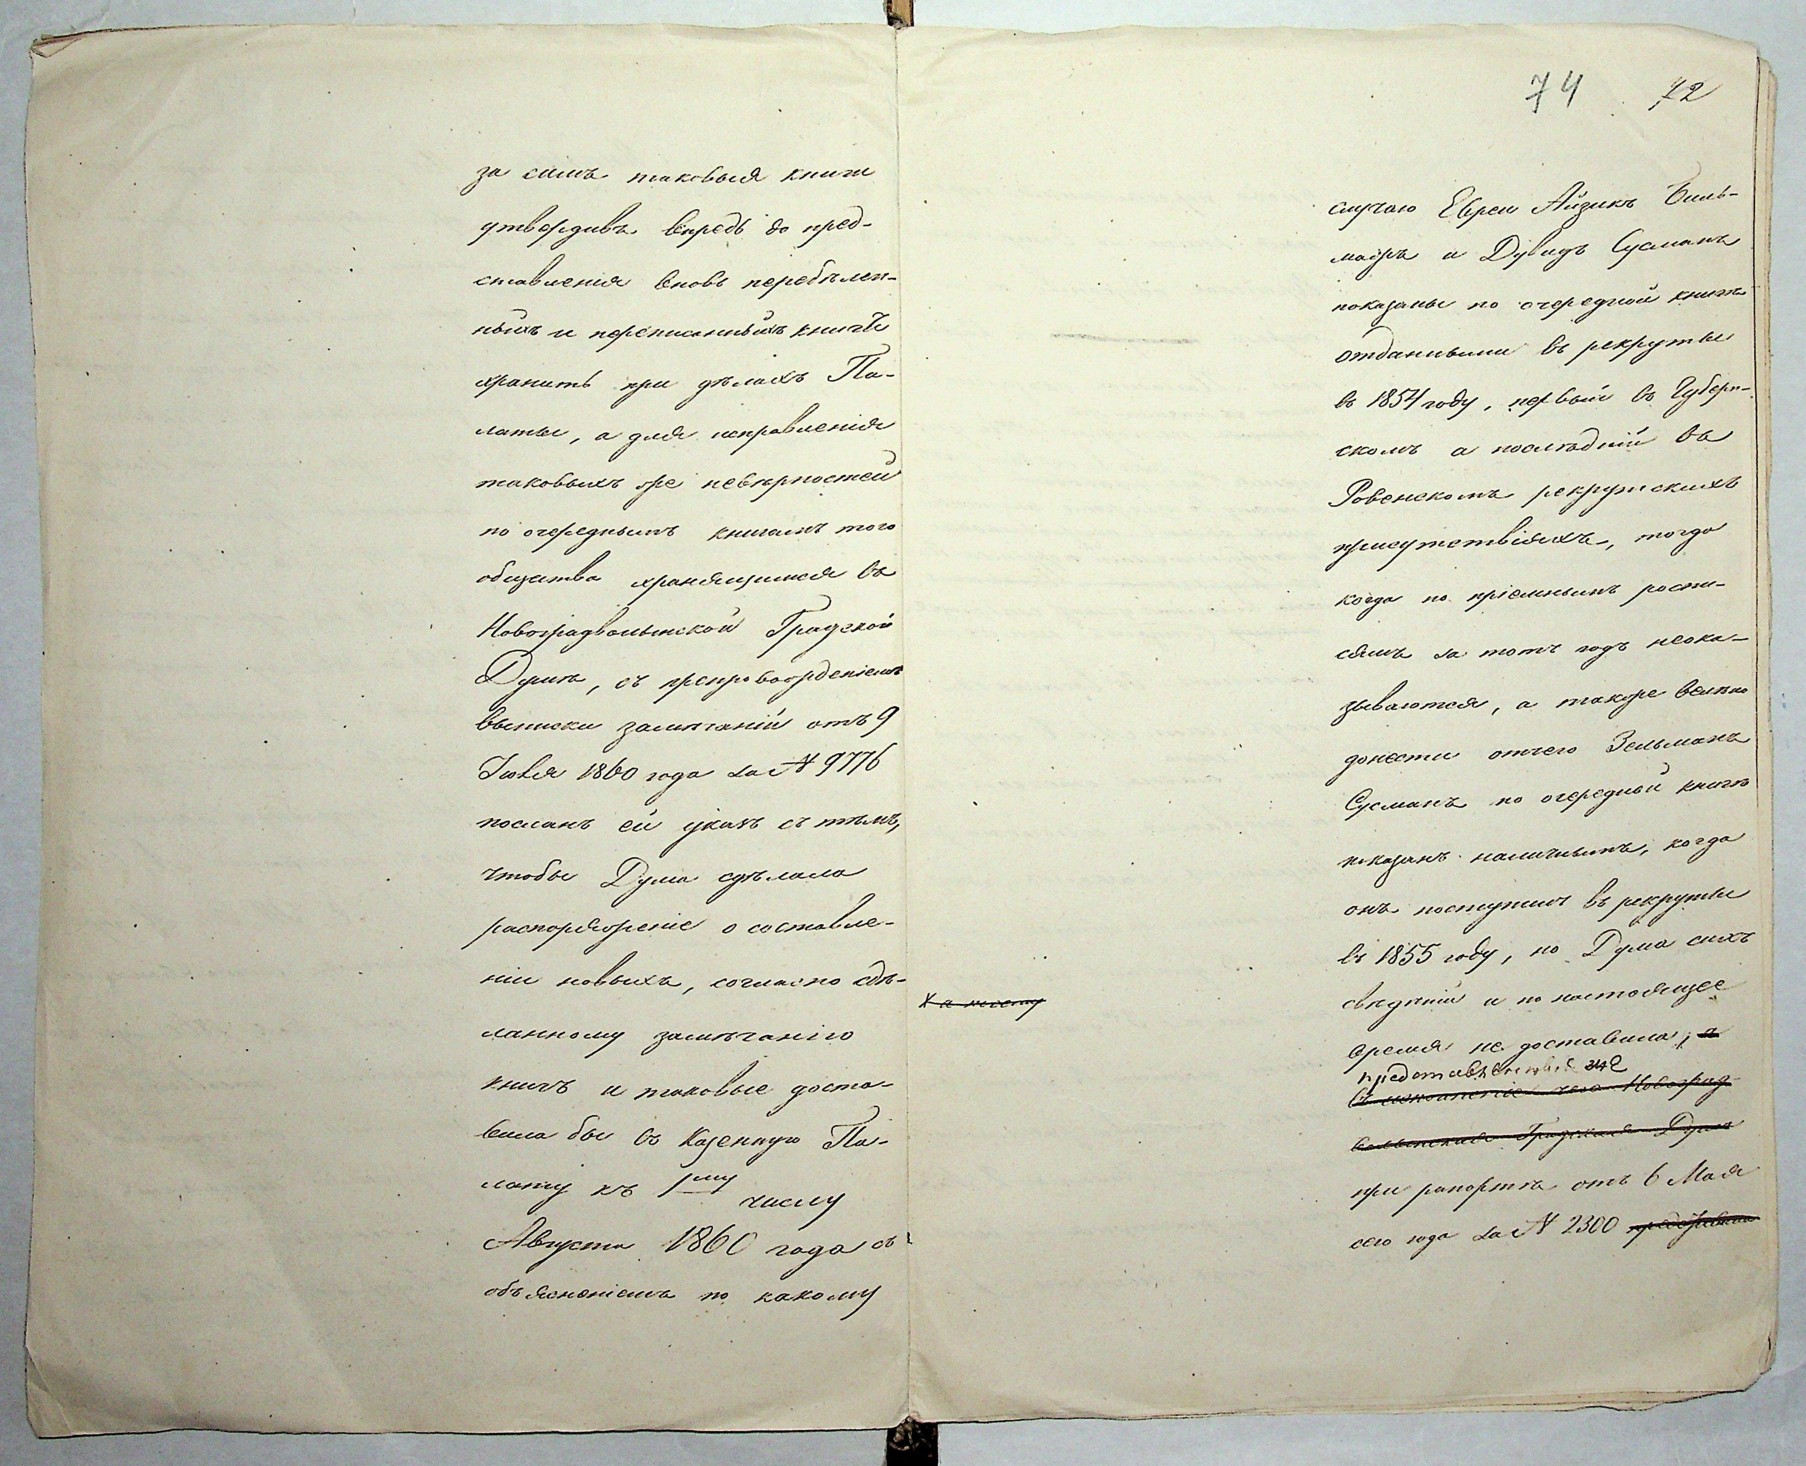 за симъ таковыя книги
утвердивъ впредь до пред-
ставленія вновь перебѣлен-
ныхъ и переписанныхъ книгъ
хранить при дѣлахъ Па-
латы, а для исправленія
таковыхъ же невѣрностей
по очереднымъ книгамъ того
общества хранящимся въ
Новоградволынской Градской
Думѣ, съ препровожденіемъ
выписки замѣчаній отъ 9
Іюля 1860 года за № 9776
посланъ ей указъ съ тѣмъ,
чтобы Дума сдѣлала
распоряженіе о составле-
ніи новыхъ, согласно сдѣ-
ланному замѣчанію
книгъ и таковые доста-
вила бы въ Казенную Па-
лату къ 1му числу
Августа 1860 года съ
объясненіемъ по какому
74 72
случаю Евреи Айзикъ Биль-
маръ и Дувидъ Сусманъ
показаны по очередной книгѣ
отданными въ рекруты
въ 1854 году, первый въ Губерн-
скомъ а послѣдній въ
Ровенскомъ рекрутскихъ
присутствіяхъ, тогда
когда по пріемнымъ роспи-
сямъ за тотъ годъ неока-
зываются, а также велѣно
донести отчего Зельманъ
Сусманъ по очередной книгѣ
показанъ наличнымъ, когда
онъ поступилъ въ рекруты
въ 1855 году, но Дума сихъ
свѣдѣній и по настоящее
время не доставила, а
въ исполненіе чего Новоград-
волынская Градская Дума
при рапортѣ отъ 6 Мая
сего года за № 2300 представила